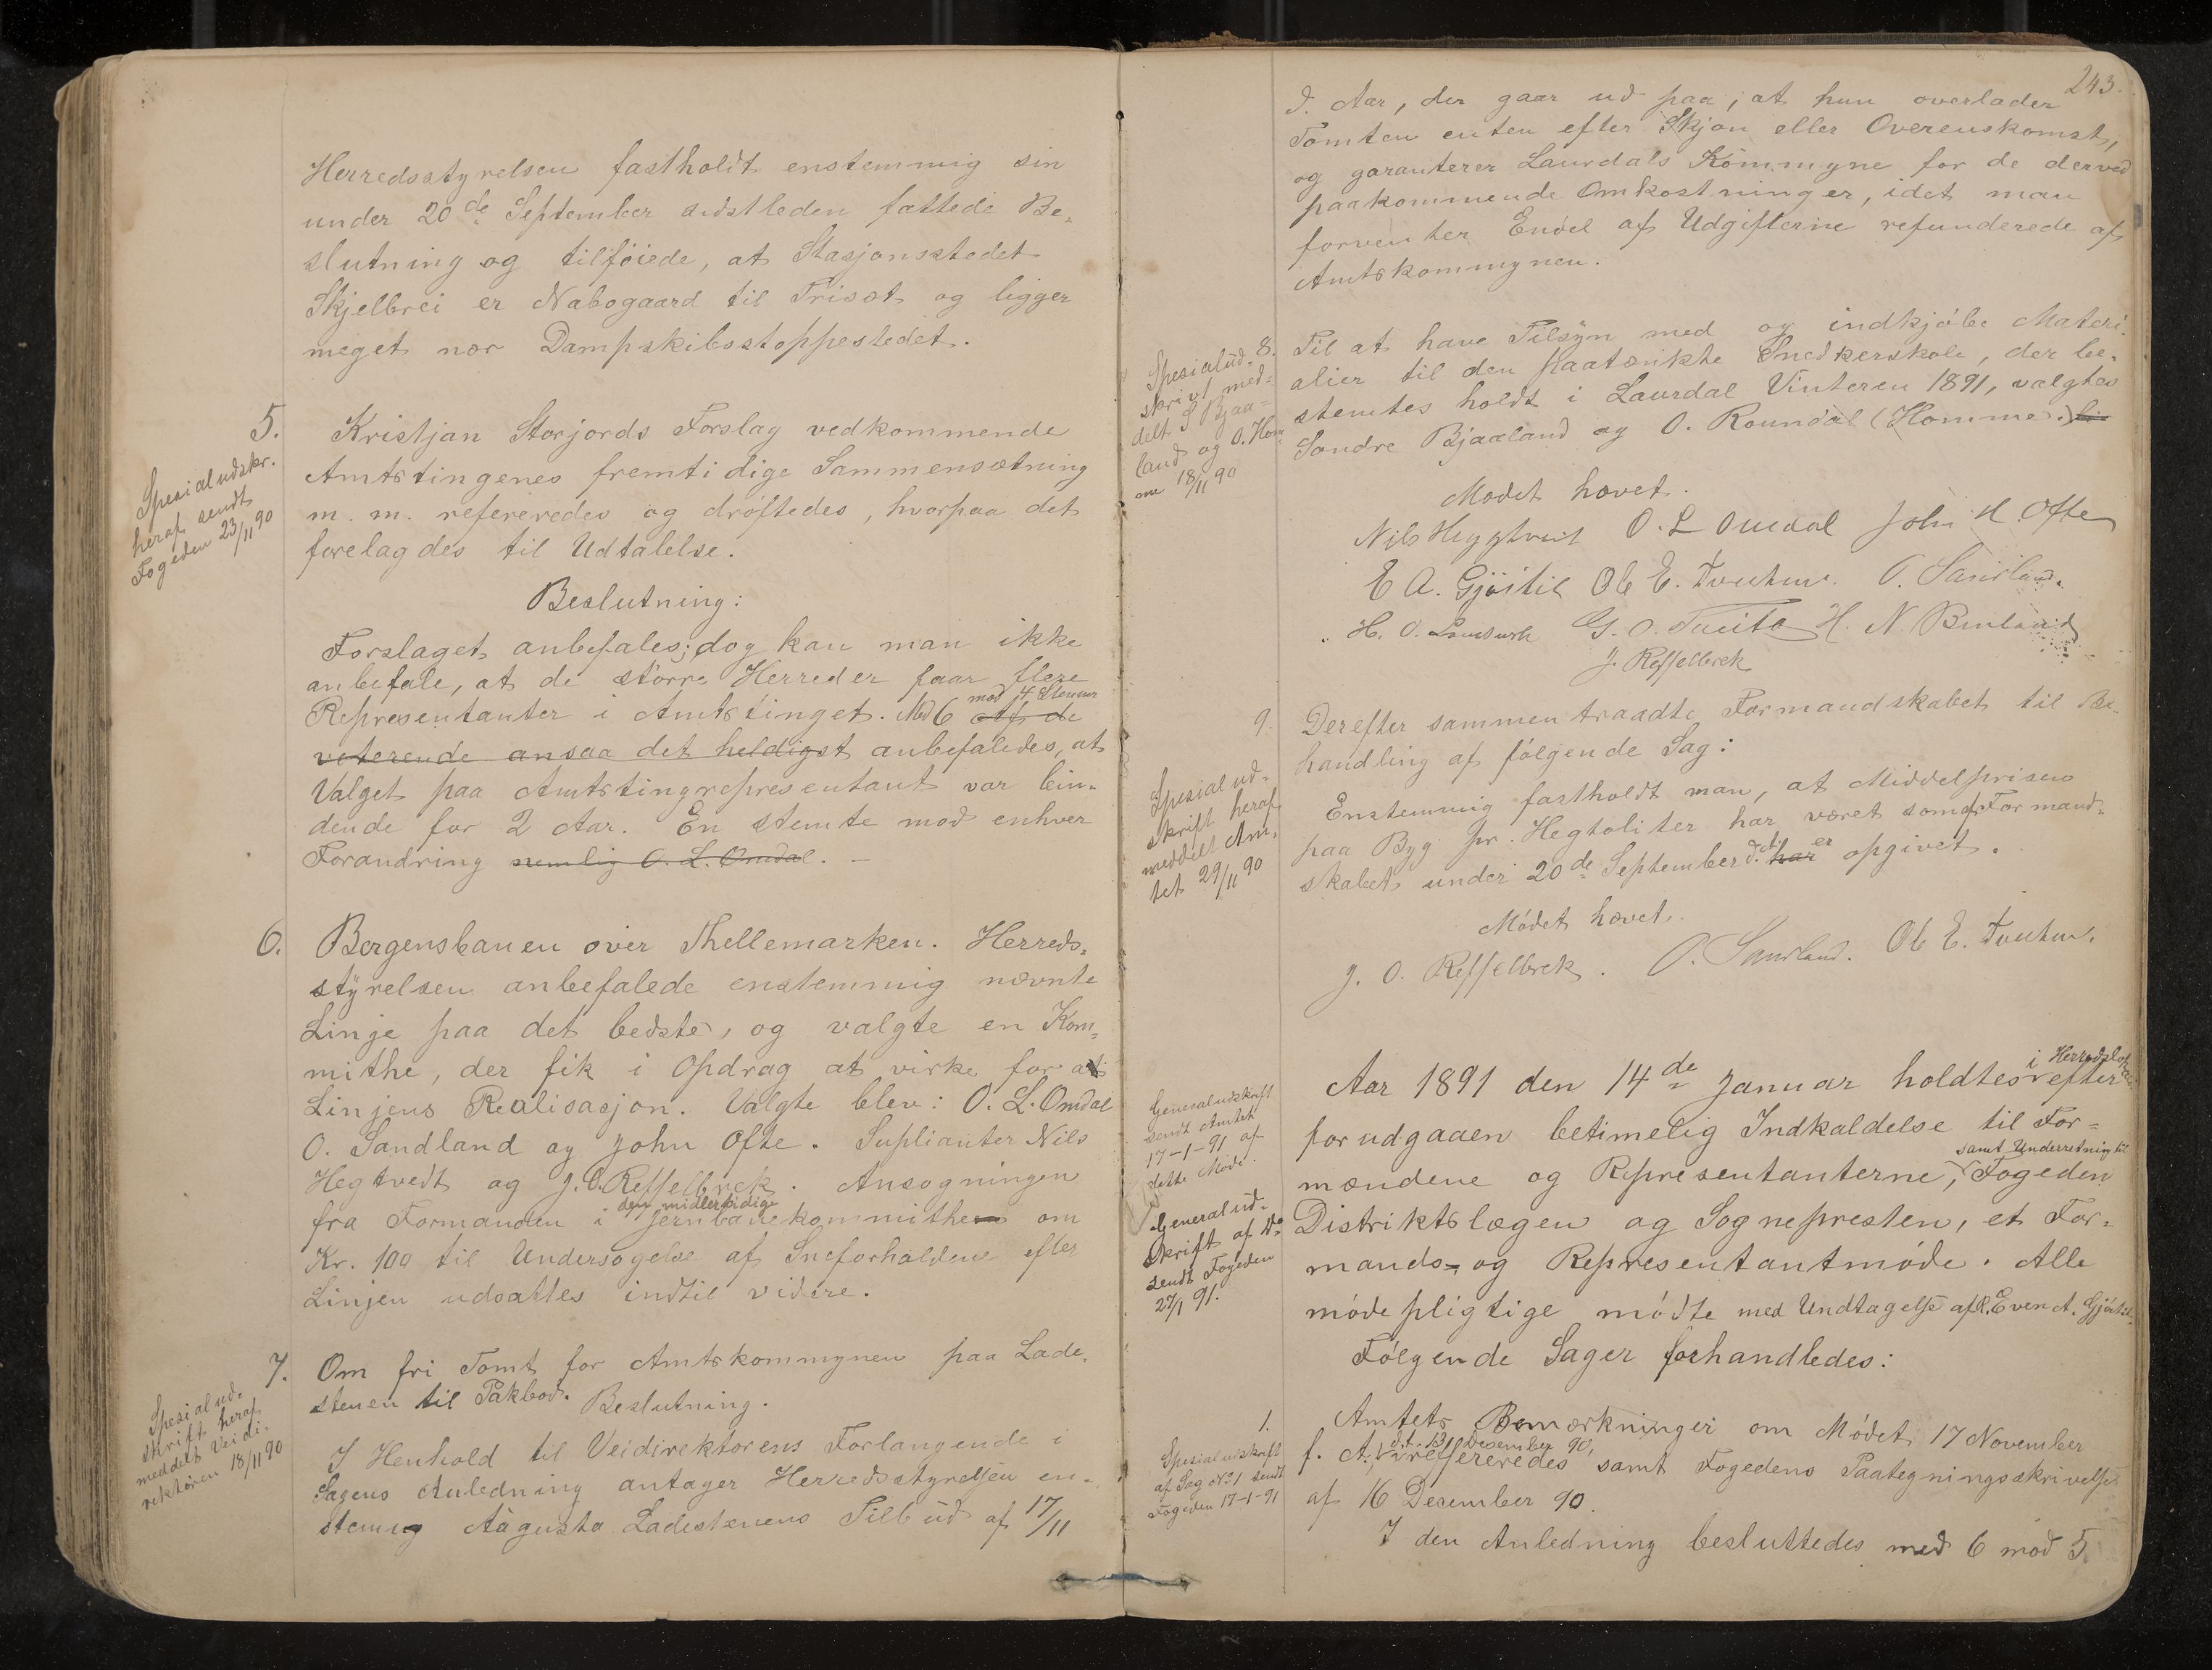 Herredsstyrelsen fastholdt enstemmig sin
under 20de September sidstleden fattede Be-
slutning og tilföiede, at Stasjonsstedet
Skjelbrei er Nabogaard til Triset og ligger
meget nær Dampskibsstoppestedet.
5.
Spesialudskr.
heraf sendt
Fogeden 23/11 90
Kristjan Storjords Forslag vedkommende
Amtstingenes fremtidige Sammensætning
m. m. refereredes og dröftedes, hvorpaa det
forelagdes til Udtalelse.
Beslutning:
Forslaget anbefales; dog kan man ikke
anbefale, at de större Herreder faar flere
mod 4 Stemmer
Representanter i Amtstinget. Med 6 Af de
voterende ansaa det heldigst anbefaledes, at
Valget paa Amtstingrepresentant var bin-
dende for 2 Aar. En stemte mod enhver
Forandring nemlig O. L. Omdal. —
6.
Bergensbanen over Thellemarken. Herreds-
styrelsen anbefalede enstemmig nævnte
Linje paa det bedste, og valgte en Kom-
mithe, der fik i Opdrag at virke for
Linjens Realisasjon. Valgte blev: O. L. Omdal
O. Sandland og John Ofte. Suplianter Nils
Hegtvedt og J. O. Reffelbrek. Ansøgningen
den midlertidige
fra Formanden i Jernbanekommitheen om
Kr. 100 til Undersøgelse af Sneforholdene efter
Linjen udsattes indtil videre.
7.
Spesialud-
skrift heraf
meddelt Veidi-
rektören 18/11 90
Om fri Tomt for Amtskommynen paa Lade-
stenen til Pakbod. Beslutning.
I Henhold til Veidirektorens Forlangende i
Sagens Anledning antager Herredsstyrelsen en-
stemig Aagusta Ladestenens Tilbud af 17/11
243.
d. Aar, der gaar ud paa, at hun overlader
Tomten enten efter Skjøn eller Overenskomst,
og garanterer Laurdals Kommyne for de derved
paakommende Omkostninger, idet man
forventer Endel af Udgifterne refunderede af
Amtskommynen.
8.
Spesialud-
skrivt med-
delt S Bjaa-
land og O. Hom
me 18/11 90
Til at have Tilsyn med og indkjøbe Materi-
alier til den paatænkte Snedkerskole, der be-
stemtes holdt i Laurdal Vinteren 1891, valgtes
Sondre Bjaaland og O. Roundal (Homme.)
Mødet hævet.
Nils Heggtveit O. L Omdal John H. Ofte
E A. Gjöitil Ole E. O. Sandland.
H. O. G. O. H. N.
J. Reffelbrek
9.
Spesialud-
skrift heraf
meddelt Am-
tet 29/11 90
Derefter sammentraadte Formandskabet til Be-
handling af fölgende Sag:
Enstemmig fastholdt man, at Middelprisen
paa Byg pr. Hegtoliter har været som af Formand-
skabet under 20de September d. A. har er opgivet.
Mödet hævet.
J. O. Reffelbrek. O. Sandland. Ole E.
Generaludskrift
sendt Amtet
17-1-91 af
dette Møde.
Generalud-
skrift af Do
sendt Fogeden
27/1 91.
i Herredslokalet
Aar 1891 den 14de Januar holdtes efter
forudgaaen betimelig Indkaldelse til For-
samt Underretning til
mændene og Representanterne, Fogeden
Distriktslægen og Sognepresten, et For-
mands- og Representantmöde. Alle
mödepligtige mödte med Undtagelse af R. Even A. Gjöitil.
Følgende Sager forhandledes:
1.
Spesialudskrift
af Sag No 1 sendt
Fogeden 17-1-91
Amtets Bemærkninger om Mödet 17 November
dt. 13 Desember 90,
f. A. refereredes samt Fogedens Paategningsskrivelse
af 16 December 90.
I den Anledning besluttedes med 6 mod 5